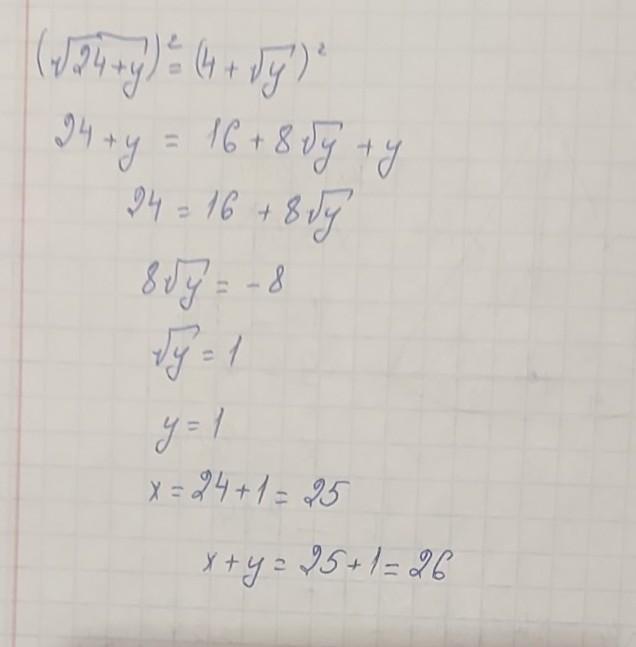 (√(24+y))² = (4 + √y)²
24 + y = 16 + 8√y + y
24 = 16 + 8√y
8√y = -8
√y = 1
y = 1
x = 24 + 1 = 25
x + y = 25 + 1 = 26